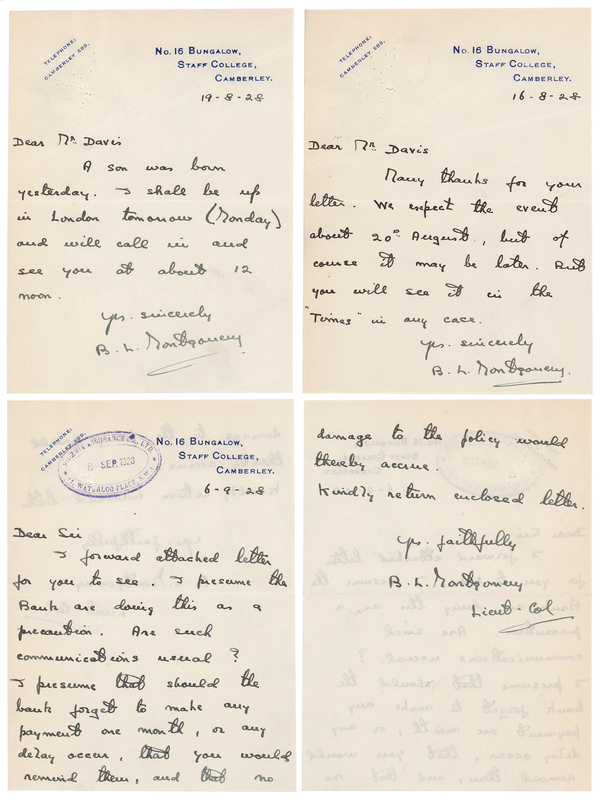 TELEPHONE:
CAMBERLEY 689.
No. 16 BUNGALOW,
STAFF COLLEGE,
CAMBERLEY.
19-8-28
Dear Mr. Davis
A son was born
yesterday. I shall be up
in London tomorrow (Monday)
and will call in and
see you at about 12
noon.
Yrs. sincerely
B. L. Montgomery
TELEPHONE:
CAMBERLEY 689.
No. 16 BUNGALOW,
STAFF COLLEGE,
CAMBERLEY.
16-8-28
Dear Mr. Davis
Many thanks for your
letter. We expect the event
about 20th August, but of
course it may be later. But
you will see it in the
"Times" in any case.
Yrs. sincerely
B. L. Montgomery.
TELEPHONE:
CAMBERLEY
ASSURANCE Co. LTD
8 - SEP. 1928
WATERLOO PLACE, S.W.1.
No. 16 BUNGALOW,
STAFF COLLEGE,
CAMBERLEY.
6-9-28
Dear Sir
I forward attached letter
for you to see. I presume the
Bank are doing this as a
precaution. Are such
communications usual?
I presume that should the
bank forget to make any
payment one month, or any
delay occur, that you would
remind them, and that no
damage to the policy would
thereby accrue.
Kindly return enclosed letter.
Yrs. faithfully
B. L. Montgomery
Lieut-Col